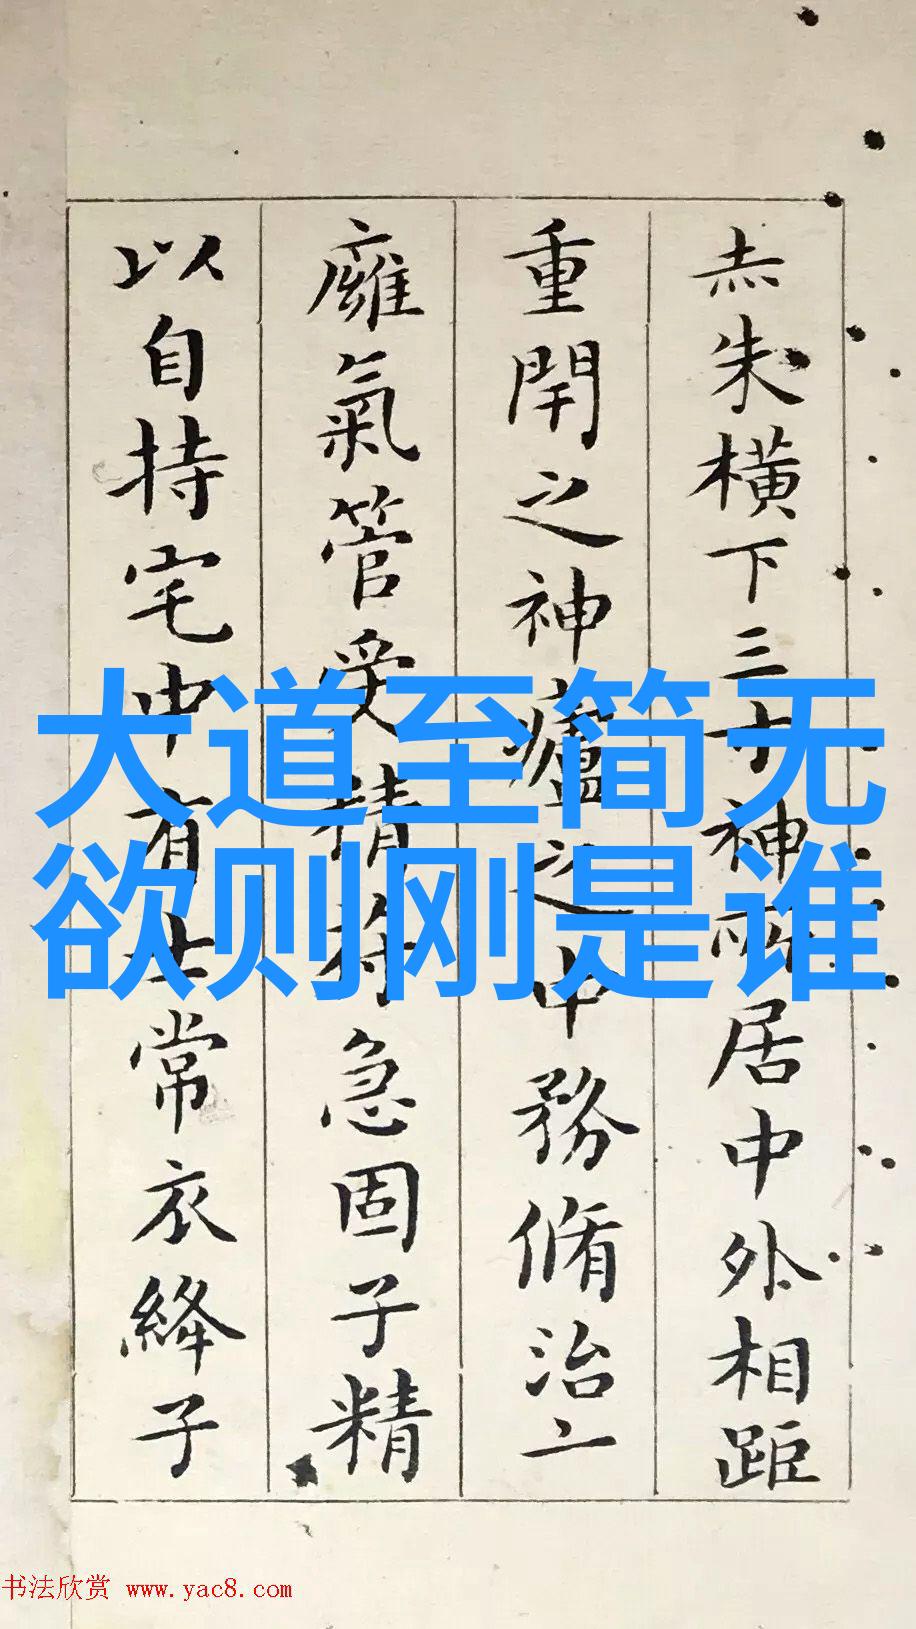 大道至简无
欲则刚是谁
赤朱橫下三寸神所居中外相距
重閇之神廬之中務脩治
氣管受精符急固子精
以自持宅中有士常衣絳子
书法欣赏 www.yac8.com